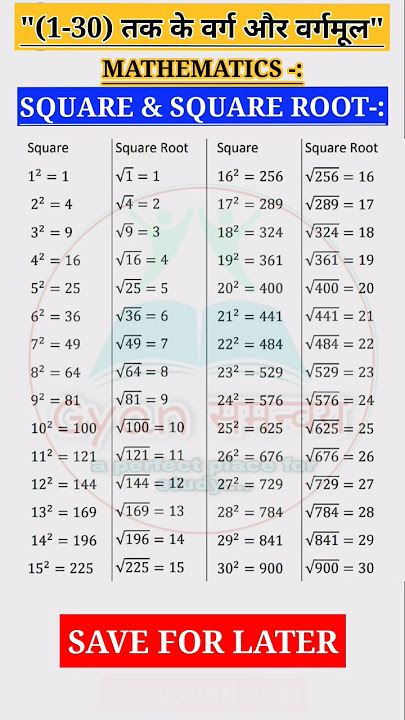 "(1-30) तक के वर्ग और वर्गमूल"
MATHEMATICS -:
SQUARE & SQUARE ROOT-:
Square Square Root Square Square Root
1² = 1 √1 = 1 16² = 256 √256 = 16
2² = 4 √4 = 2 17² = 289 √289 = 17
3² = 9 √9 = 3 18² = 324 √324 = 18
4² = 16 √16 = 4 19² = 361 √361 = 19
5² = 25 √25 = 5 20² = 400 √400 = 20
6² = 36 √36 = 6 21² = 441 √441 = 21
7² = 49 √49 = 7 22² = 484 √484 = 22
8² = 64 √64 = 8 23² = 529 √529 = 23
9² = 81 √81 = 9 24² = 576 √576 = 24
Gyan समन्वय
10² = 100 √100 = 10 25² = 625 √625 = 25
11² = 121 √121 = 11 26² = 676 √676 = 26
a perfect place for
study...
12² = 144 √144 = 12 27² = 729 √729 = 27
13² = 169 √169 = 13 28² = 784 √784 = 28
14² = 196 √196 = 14 29² = 841 √841 = 29
15² = 225 √225 = 15 30² = 900 √900 = 30
SAVE FOR LATER